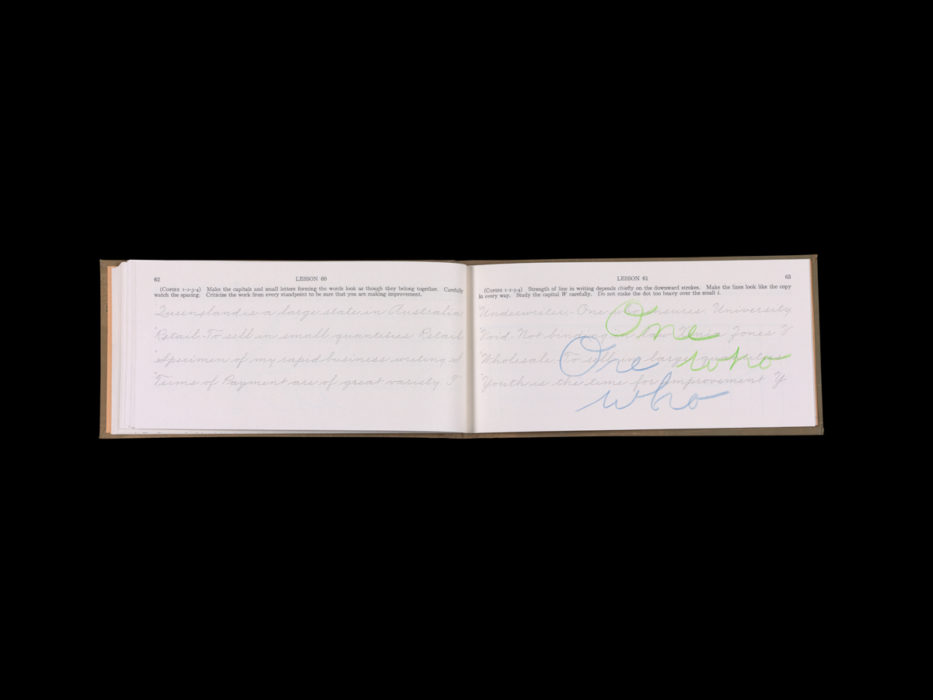 62
LESSON 60
(COPIES 1-2-3-4) Make the capitals and small letters forming the words look as though they belong together. Carefully
watch the spacing. Criticize the work from every standpoint to be sure that you are making improvement.
Queensland is a large state in Australia
Retail-To sell in small quantities Retail
Specimen of my rapid business writing S
Terms of Payment are of great variety T
LESSON 61
63
(COPIES 1-2-3-4) Strength of line in writing depends chiefly on the downward strokes. Make the lines look like the copy
in every way. Study the capital W carefully. Do not make the dot too heavy over the small i.
Underwriter-One who insures. University
Void. Not binding in law Jones V
Wholesale-To sell in large quantities
Youth is the time for improvement Y
One
who
One
who